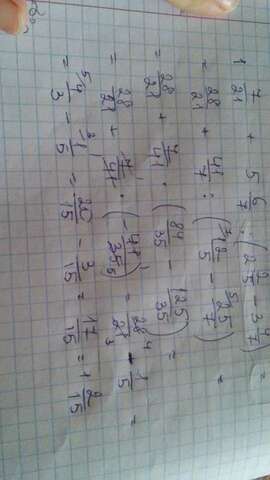 1 7/21 + 5 6/7 : (2 2/5 - 3 4/7) =
= 28/21 + 41/7 : (12/5 - 25/7) =
= 28/21 + 7/41 · (84/35 - 125/35) =
= 28/21 + 7/41 · (-41/35) = 28/21 - 1/5 =
= 4/3 - 1/5 = 20/15 - 3/15 = 17/15 = 1 2/15